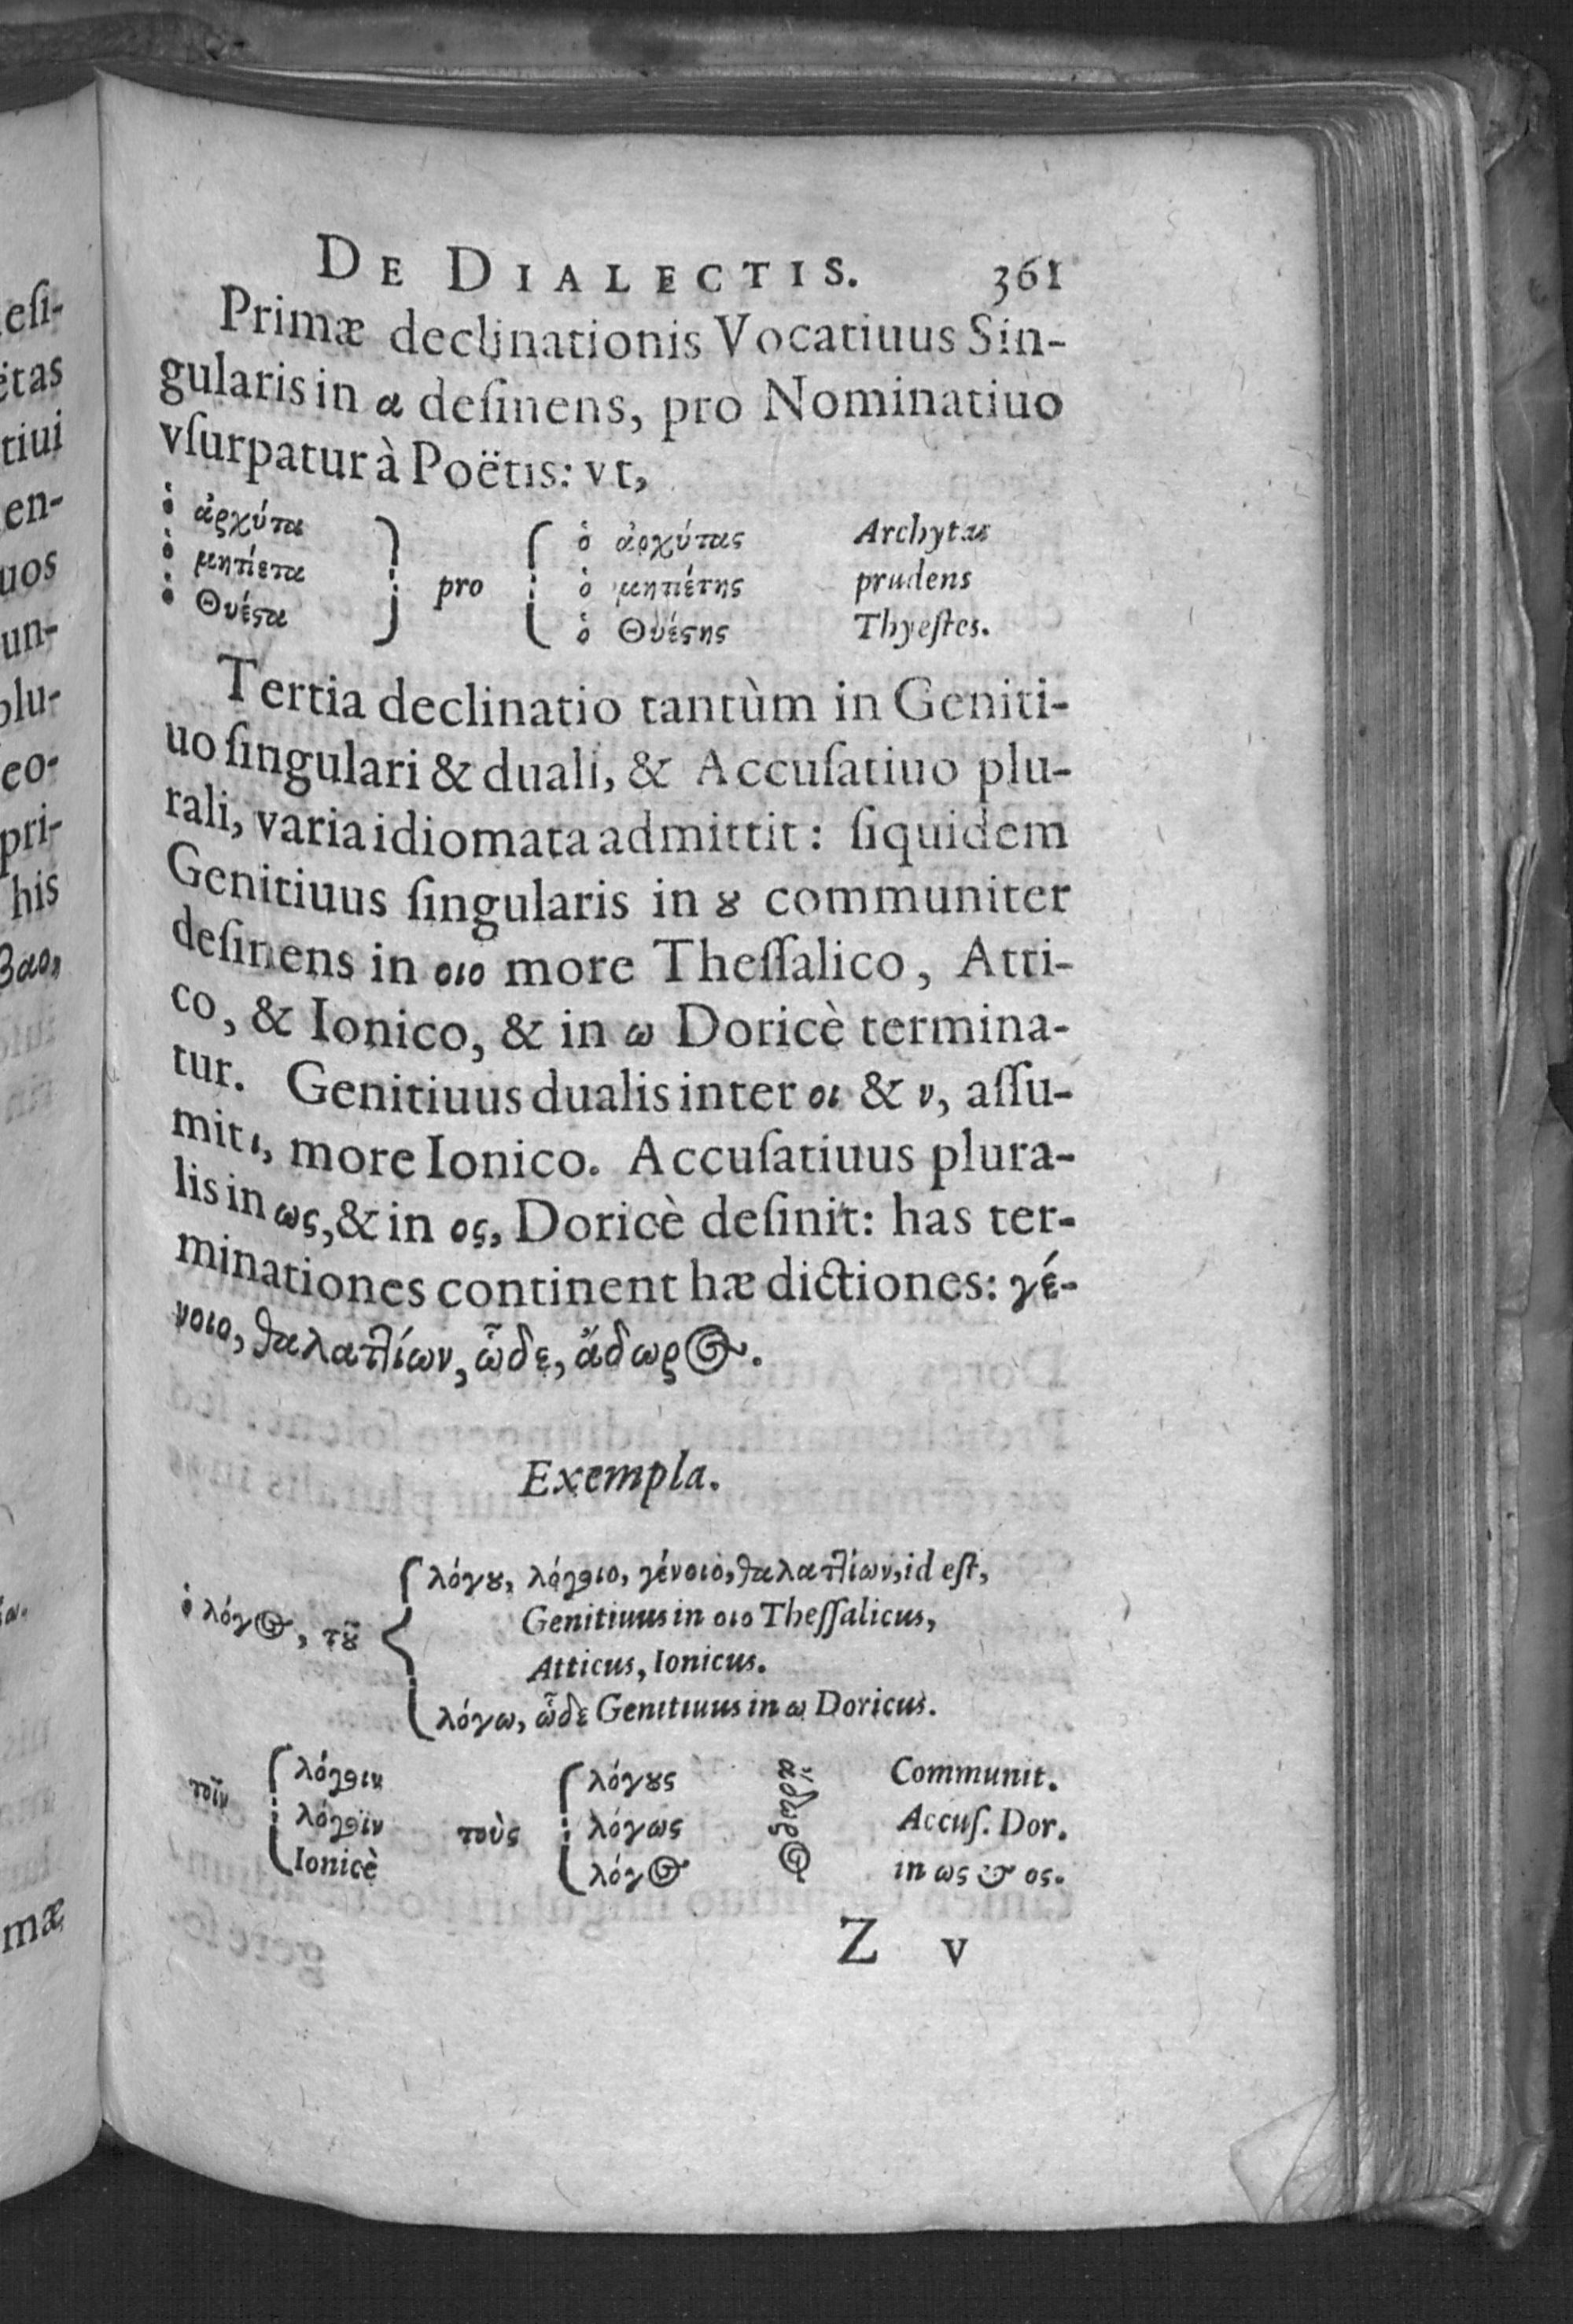 DE DIALECTIS. 361
Primæ declinationis Vocatiuus Sin-
gularis in α desinens, pro Nominatiuo
vſurpatur à Poëtis: vt,
ὁ ἀρχύτα } pro { ὁ ἀρχύτας Archytas
ὁ μητίετα ὁ μητιέτης prudens
ὁ Θυέϛα ὁ Θυέϛης Thyeſtes.
Tertia declinatio tantùm in Geniti-
uo ſingulari & duali, & Accuſatiuo plu-
rali, varia idiomata admittit: ſiquidem
Genitiuus ſingularis in ȣ communiter
deſinens in οιο more Theſſalico, Atti-
co, & Ionico, & in ω Doricè termina-
tur. Genitiuus dualis inter οι & ν, aſſu-
mit ι, more Ionico. Accuſatiuus plura-
lis in ως, & in ος, Doricè deſinit: has ter-
minationes continent hæ dictiones: γέ-
νοιο, θαλατλίων, ὧδε, ἄδωρος.
Exempla.
ὁ λόγος, τȣ͂ { λόγȣ, λόγοιο, γένοιο, θαλατλίων, id eſt,
Genitiuus in οιο Theſſalicus,
Atticus, Ionicus.
λόγω, ὧδε Genitiuus in ω Doricus.
τοῖν { λόγοιν τοὺς { λόγȣς ἄδωρος Communit.
λόγοϊιν λόγως Accuſ. Dor.
Ionicè λόγος in ως & ος.
Z v
eſi-
ëtas
tiui
en-
uos
un-
olu-
eo-
pri-
his
βαο,
mæ